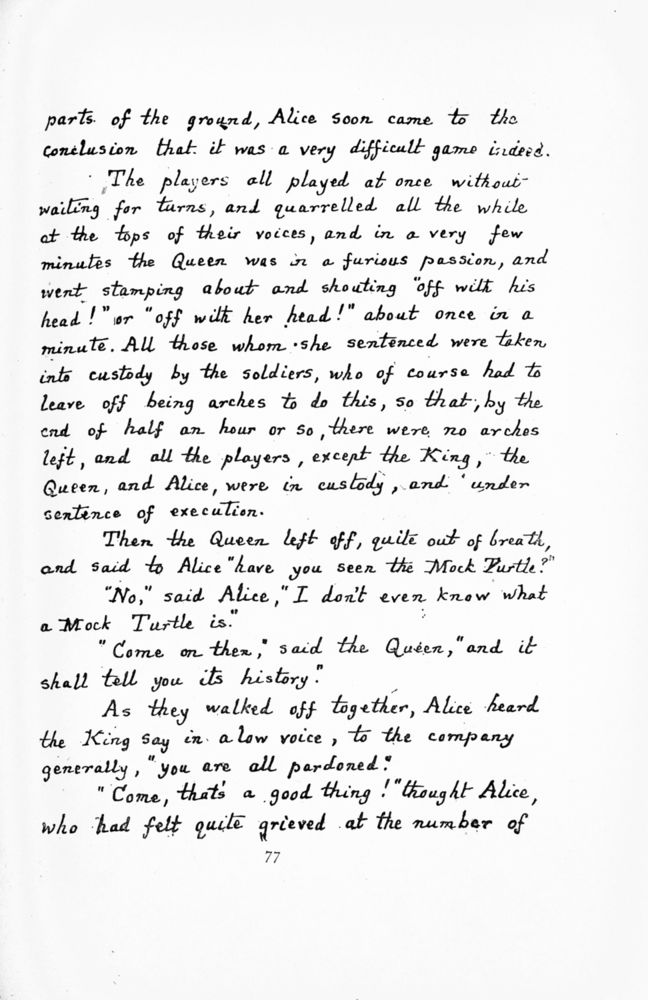 parts of the ground, Alice soon came to the
conclusion that it was a very difficult game indeed.
The players all played at once without
waiting for turns, and quarrelled all the while
at the tops of their voices, and in a very few
minutes the Queen was in a furious passion, and
went stamping about and shouting "off with his
head!" or "off with her head!" about once in a
minute. All those whom she sentenced were taken
into custody by the soldiers, who of course had to
leave off being arches to do this, so that, by the
end of half an hour or so, there were no arches
left, and all the players, except the King, the
Queen, and Alice, were in custody, and under
sentence of execution.
Then the Queen left off, quite out of breath,
and said to Alice "have you seen the Mock Turtle?"
"No," said Alice, "I don't even know what
a Mock Turtle is."
"Come on then," said the Queen, "and it
shall tell you its history."
As they walked off together, Alice heard
the King say in a low voice, to the company
generally, "you are all pardoned."
"Come, that's a good thing!" thought Alice,
who had felt quite grieved at the number of
77